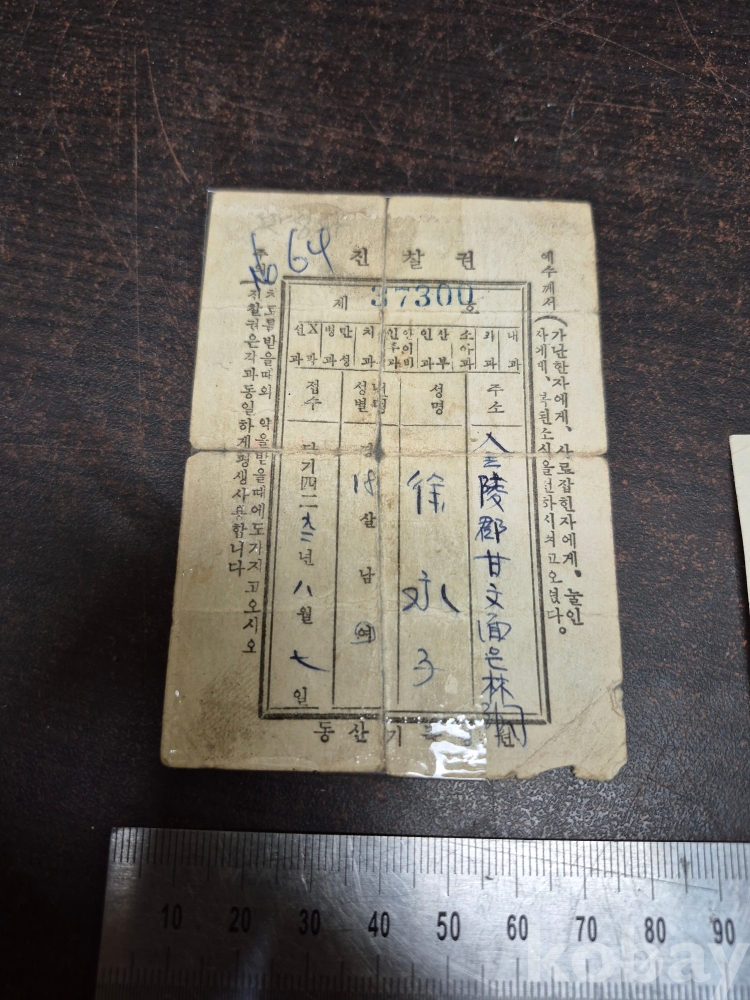 64
진찰권
제 37300 호
내과
외과
소아과
산부인과
안이비인후과
치과
만성병과
X선과
주소
金陵郡甘文面
성명
徐永子
성별
18살 남 여
접수
단기四二九二년 八월 七일
동산기독병원
예수께서 (가난한자에게, 사로잡힌자에게, 눌인
자에게, 복된소식을전하시려고오셨다.
치료를받을때와 약을받을때에도가지고오시오
진찰권은각과동일하게평생사용합니다
10 20 30 40 50 60 70 80 90
kobay